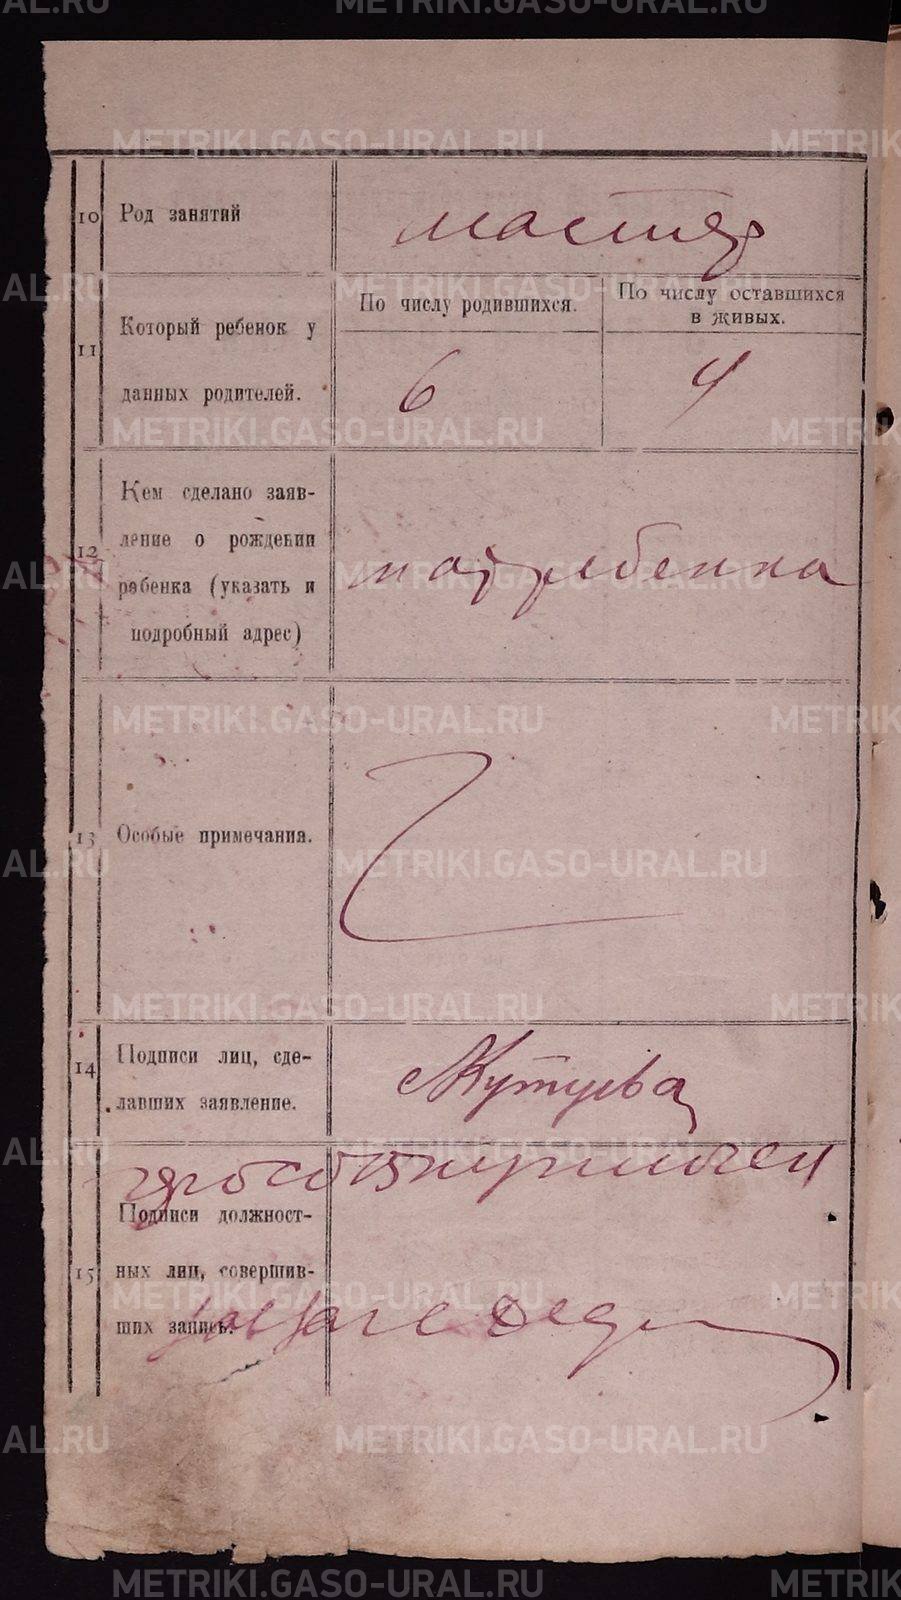 10 Род занятий
мастер
11 Который ребенок у
данных родителей.
По числу родившихся.
По числу оставшихся
в живых.
6
4
12 Кем сделано заяв-
ление о рождении
ребенка (указать и
подробный адрес)
мат ребенка
13 Особые примечания.
14 Подписи лиц, сде-
лавших заявление.
15 Подписи должност-
ных лиц, совершив-
ших запись.
METRIKI.GASO-URAL.RU